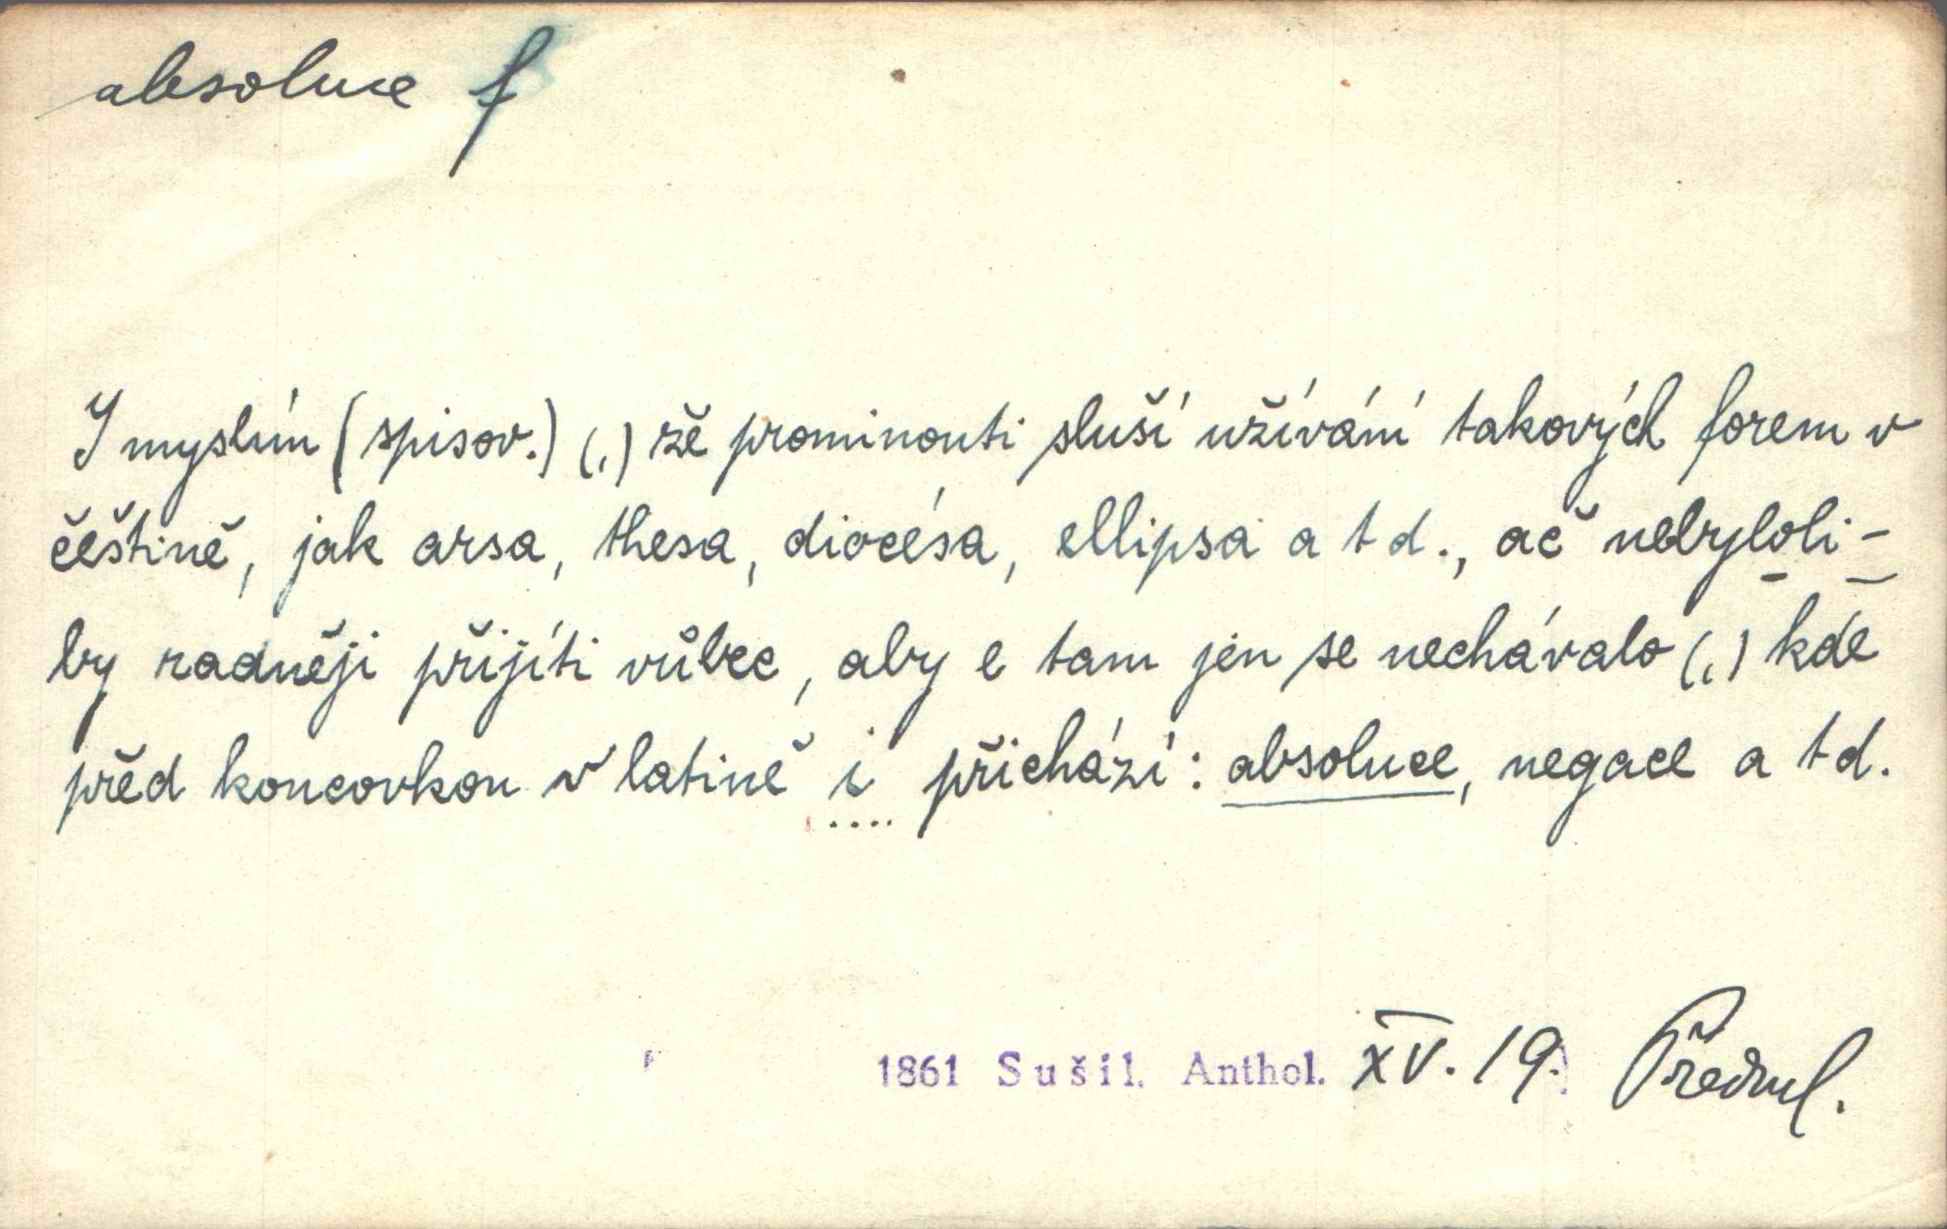 absoluce f
I myslím (spisov.) (,) že prominouti sluší užívání takových forem v
češtině, jak arsa, thesa, diocésa, ellipsa a t d., ač nebyloli-
by radněji přijíti vůbec, aby e tam jen se nechávalo (,) kde
před koncovkou v latině i přichází: absoluce, negace a t d.
1861 Sušil. Anthol. XV. 19. Předml.